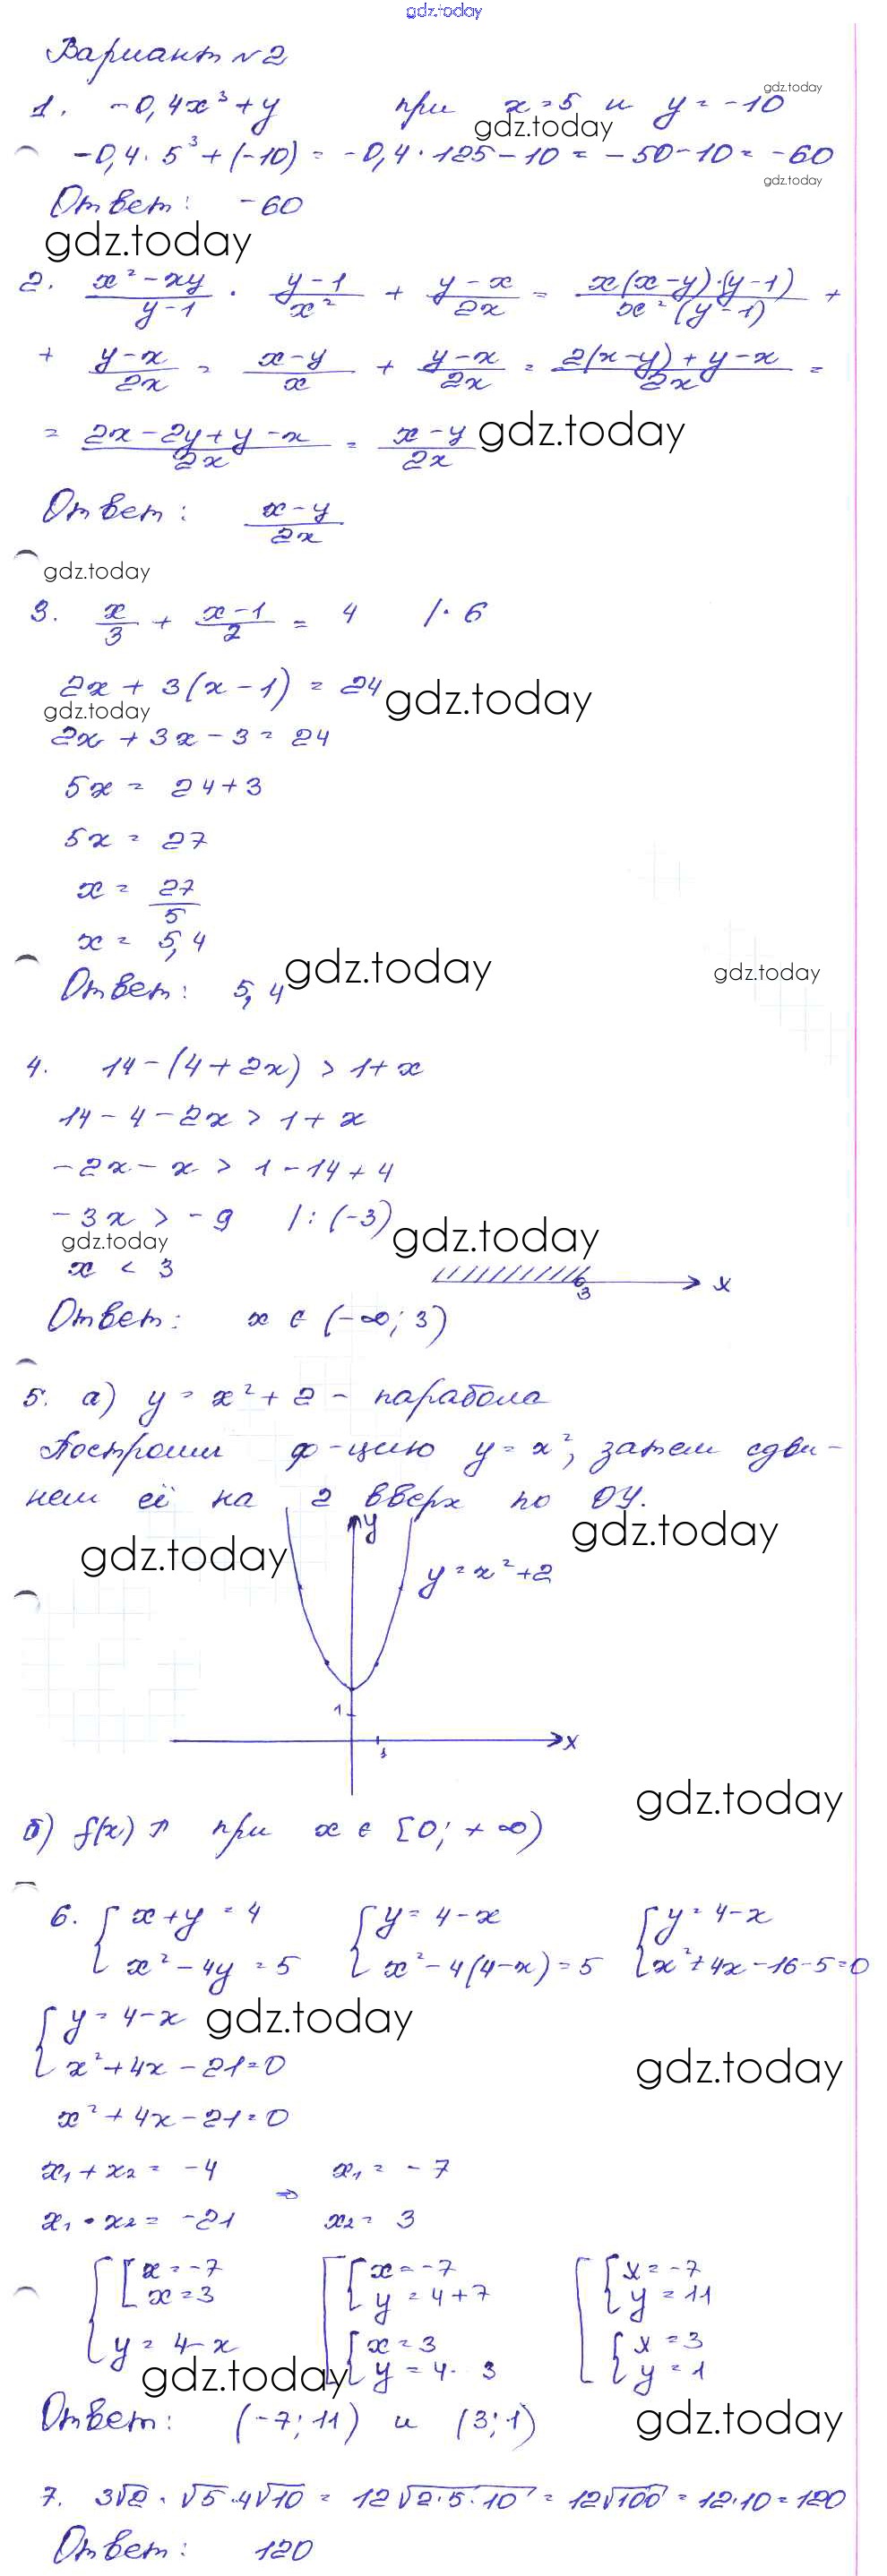 gdz.today
Вариант №2
gdz.today
1. -0,4x³ + y при x = 5 и y = -10
gdz.today
-0,4 · 5³ + (-10) = -0,4 · 125 - 10 = -50 - 10 = -60
gdz.today
Ответ: -60
gdz.today
2. (x² - xy)/(y - 1) · (y - 1)/x² + (y - x)/2x = x(x - y)·(y - 1)/x²(y - 1) +
+ (y - x)/2x = (x - y)/x + (y - x)/2x = (2(x - y) + y - x)/2x =
= (2x - 2y + y - x)/2x = (x - y)/2x gdz.today
Ответ: (x - y)/2x
gdz.today
3. x/3 + (x - 1)/2 = 4 | · 6
2x + 3(x - 1) = 24 gdz.today
gdz.today
2x + 3x - 3 = 24
5x = 24 + 3
5x = 27
x = 27/5
x = 5,4
gdz.today gdz.today
Ответ: 5,4
4. 14 - (4 + 2x) > 1 + x
14 - 4 - 2x > 1 + x
-2x - x > 1 - 14 + 4
-3x > -9 | : (-3)
gdz.today gdz.today
x < 3
3 x
Ответ: x ∈ (-∞; 3)
5. а) y = x² + 2 - парабола
Построим ф-цию y = x², затем сдви-
нем её на 2 вверх по OY.
y
gdz.today gdz.today
y = x² + 2
1
x
1
gdz.today
б) f(x) ↗ при x ∈ [0; +∞)
6. { x + y = 4 { y = 4 - x { y = 4 - x
x² - 4y = 5 x² - 4(4 - x) = 5 x² + 4x - 16 - 5 = 0
{ y = 4 - x gdz.today
x² + 4x - 21 = 0 gdz.today
x² + 4x - 21 = 0
x₁ + x₂ = -4 ⇒ x₁ = -7
x₁ · x₂ = -21 x₂ = 3
{ [ x = -7 [ { x = -7 [ { x = -7
x = 3 y = 4 + 7 y = 11
{ x = 3 { x = 3
y = 4 - x y = 4 - 3 y = 1
gdz.today
Ответ: (-7; 11) и (3; 1) gdz.today
7. 3√2 · √5 · 4√10 = 12√(2·5·10) = 12√100 = 12·10 = 120
Ответ: 120